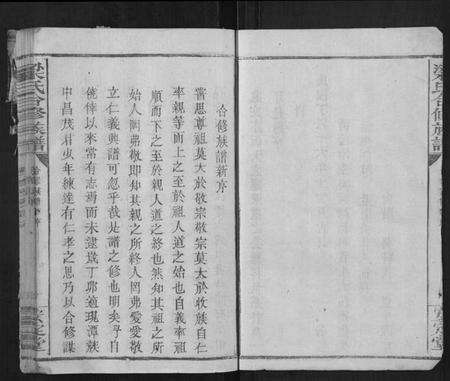 合修族譜新序
嘗思尊祖莫大於敬宗敬宗莫大於收族自仁
率親等而上之至於祖人道之始也自義率祖
順而下之至於親人道之終也然知其祖之所
始人罔弗敬即知其親之所終人罔弗愛愛敬
立仁義興譜可忽乎哉是譜之修也明矣乎自
倚倖以來常有志焉而未逮歲丁邜適現潭族
中昌茂君少年練達有仁孝之思乃以合修謀
梁氏合修族譜
梁氏合修族譜
安定堂